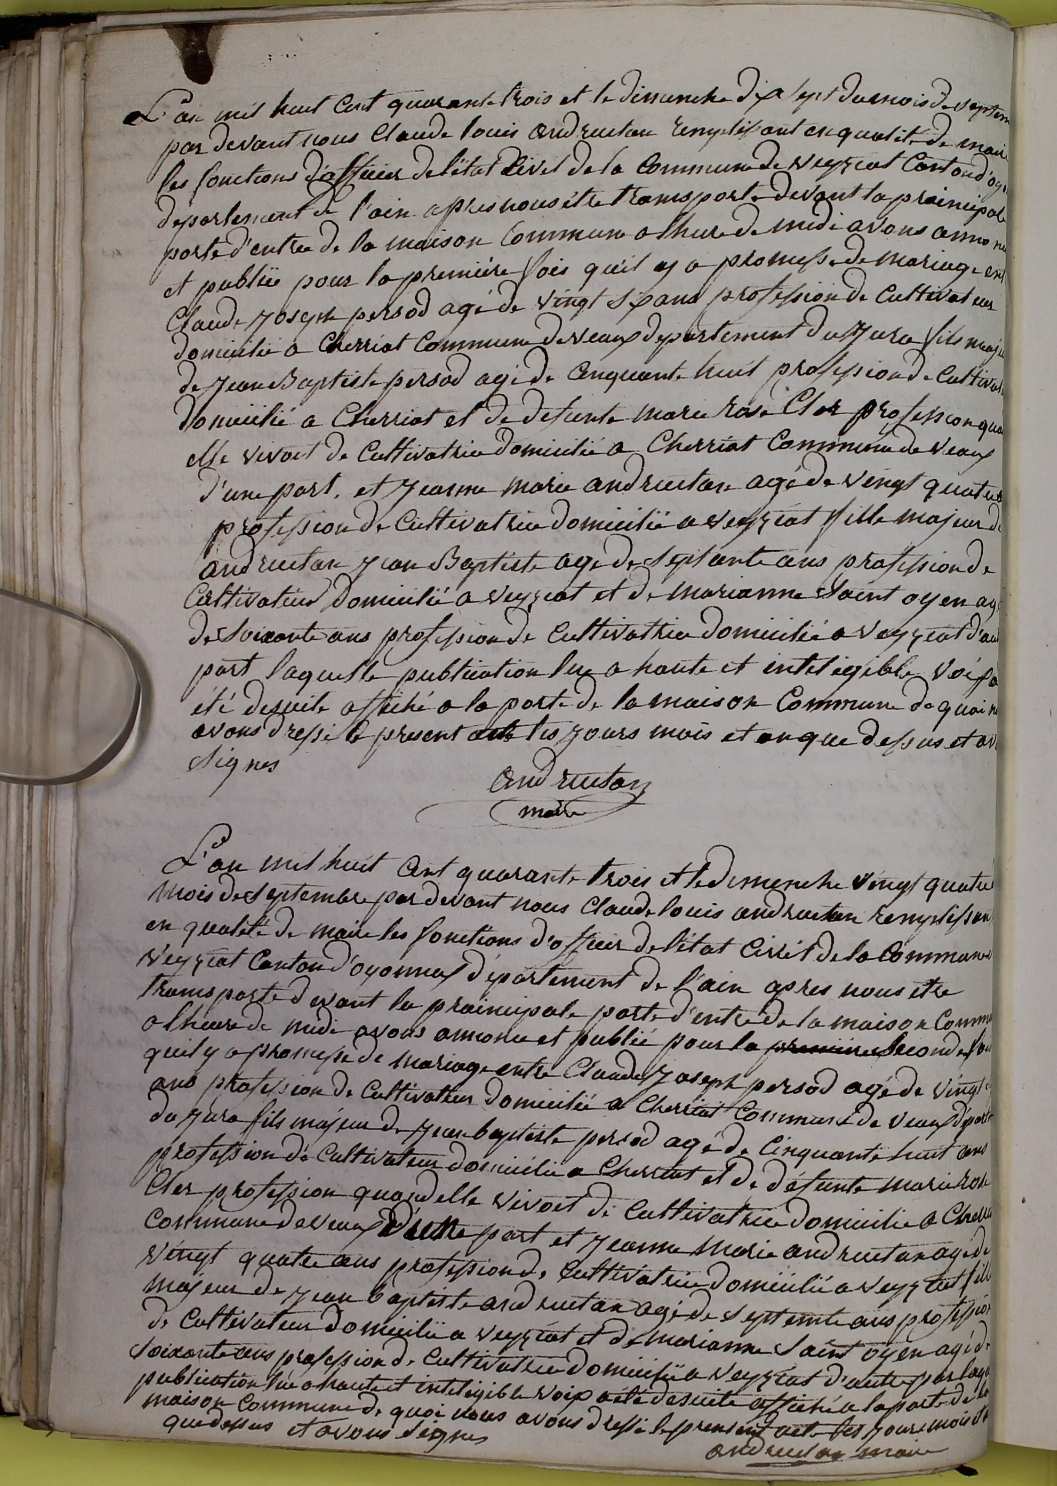 L'an mil huit Cent quarante trois et le dimenche dix sept du mois de septem
par devant nous Claude louis andruetan remplissant en qualité de maire
les fonctions d'officier de l'état Civil de la Commune de veyziat Canton d'oyo
departement de l'ain apres nous être transporte devant la prainipale
porte d'entrée de la maison Commune a lheure de midi avons annonce
et publiée pour la premiére fois qu'il y a promesse de mariage ent
Claude joseph persod agé de vingt six ans profession de Cultivateur
domicilié a Cherriat Commune de veaux departement du jura fils majeur
de jean Baptiste persod agé de Cinquante huit profession de Cultivat
domicilié a Cherriat et de defunte marie rose Cler profession quan
elle vivoit de Cultivatrice domicilié a Cherriat Commune de veaux
d'une part. et jeanne marie andruetan agé de vingt quatre
profession de Cultivatrice domicilié a veyziat fille majeur de
andruetan jean Baptiste agé de septante ans profession de
Cultivateur domicilié a veyziat et de marianne Saint oyen agé
de Soixante ans profession de Cultivatrice domicilié a veyziat d'aut
part laquelle publication lue a haute et inteligible voix a
été desuite affiché a la porte de la maison Commune de quoi n
avons dressé le present acte les jours mois et an que dessus et av
signes
andruetan
maire
L'an mil huit Cent quarante trois et le dimenche vingt quatre
mois de septembre par devant nous Claude louis andruetan remplissan
en qualité de maire les fonctions d'officier de l'état Civil de la Commune
veyziat Canton d'oyonnax département de l'ain apres nous etre
transporte devant la prainipale porte d'entré de la maison Commu
a lheure de midi avons annonce et publié pour la premiere seconde fois
quil y a promesse de mariage entre Claude joseph persod agé de vingt s
ans profession de Cultivateur domicilié a Cherriat Commune de veaux départ
du jura fils majeur de jean baptiste persod agé de Cinquante huit ans
profession de Cultivateur domicilié a Cherriat et de défunte marie rose
Cler profession quand elle vivoit de Cultivatrice domicilié a Cherria
Commune de veaux d'une part et jeanne marie andruetan agé de
vingt quatre ans profession de Cultivatrice domicilié a veyziat fill
majeur de jean baptiste andruetan agé de septente ans profession
de Cultivateur domicilié a veyziat et de marianne Saint oyen agé de
soixante ans profession de Cultivatrice domicilié a veyziat d'autre par laqu
publication lue a haute et inteligible voix a été desuite affiché a la porte de la
maison Commune de quoi nous avons dressé le present acte les jours mois et
que dessus et avons signes
andruetan maire